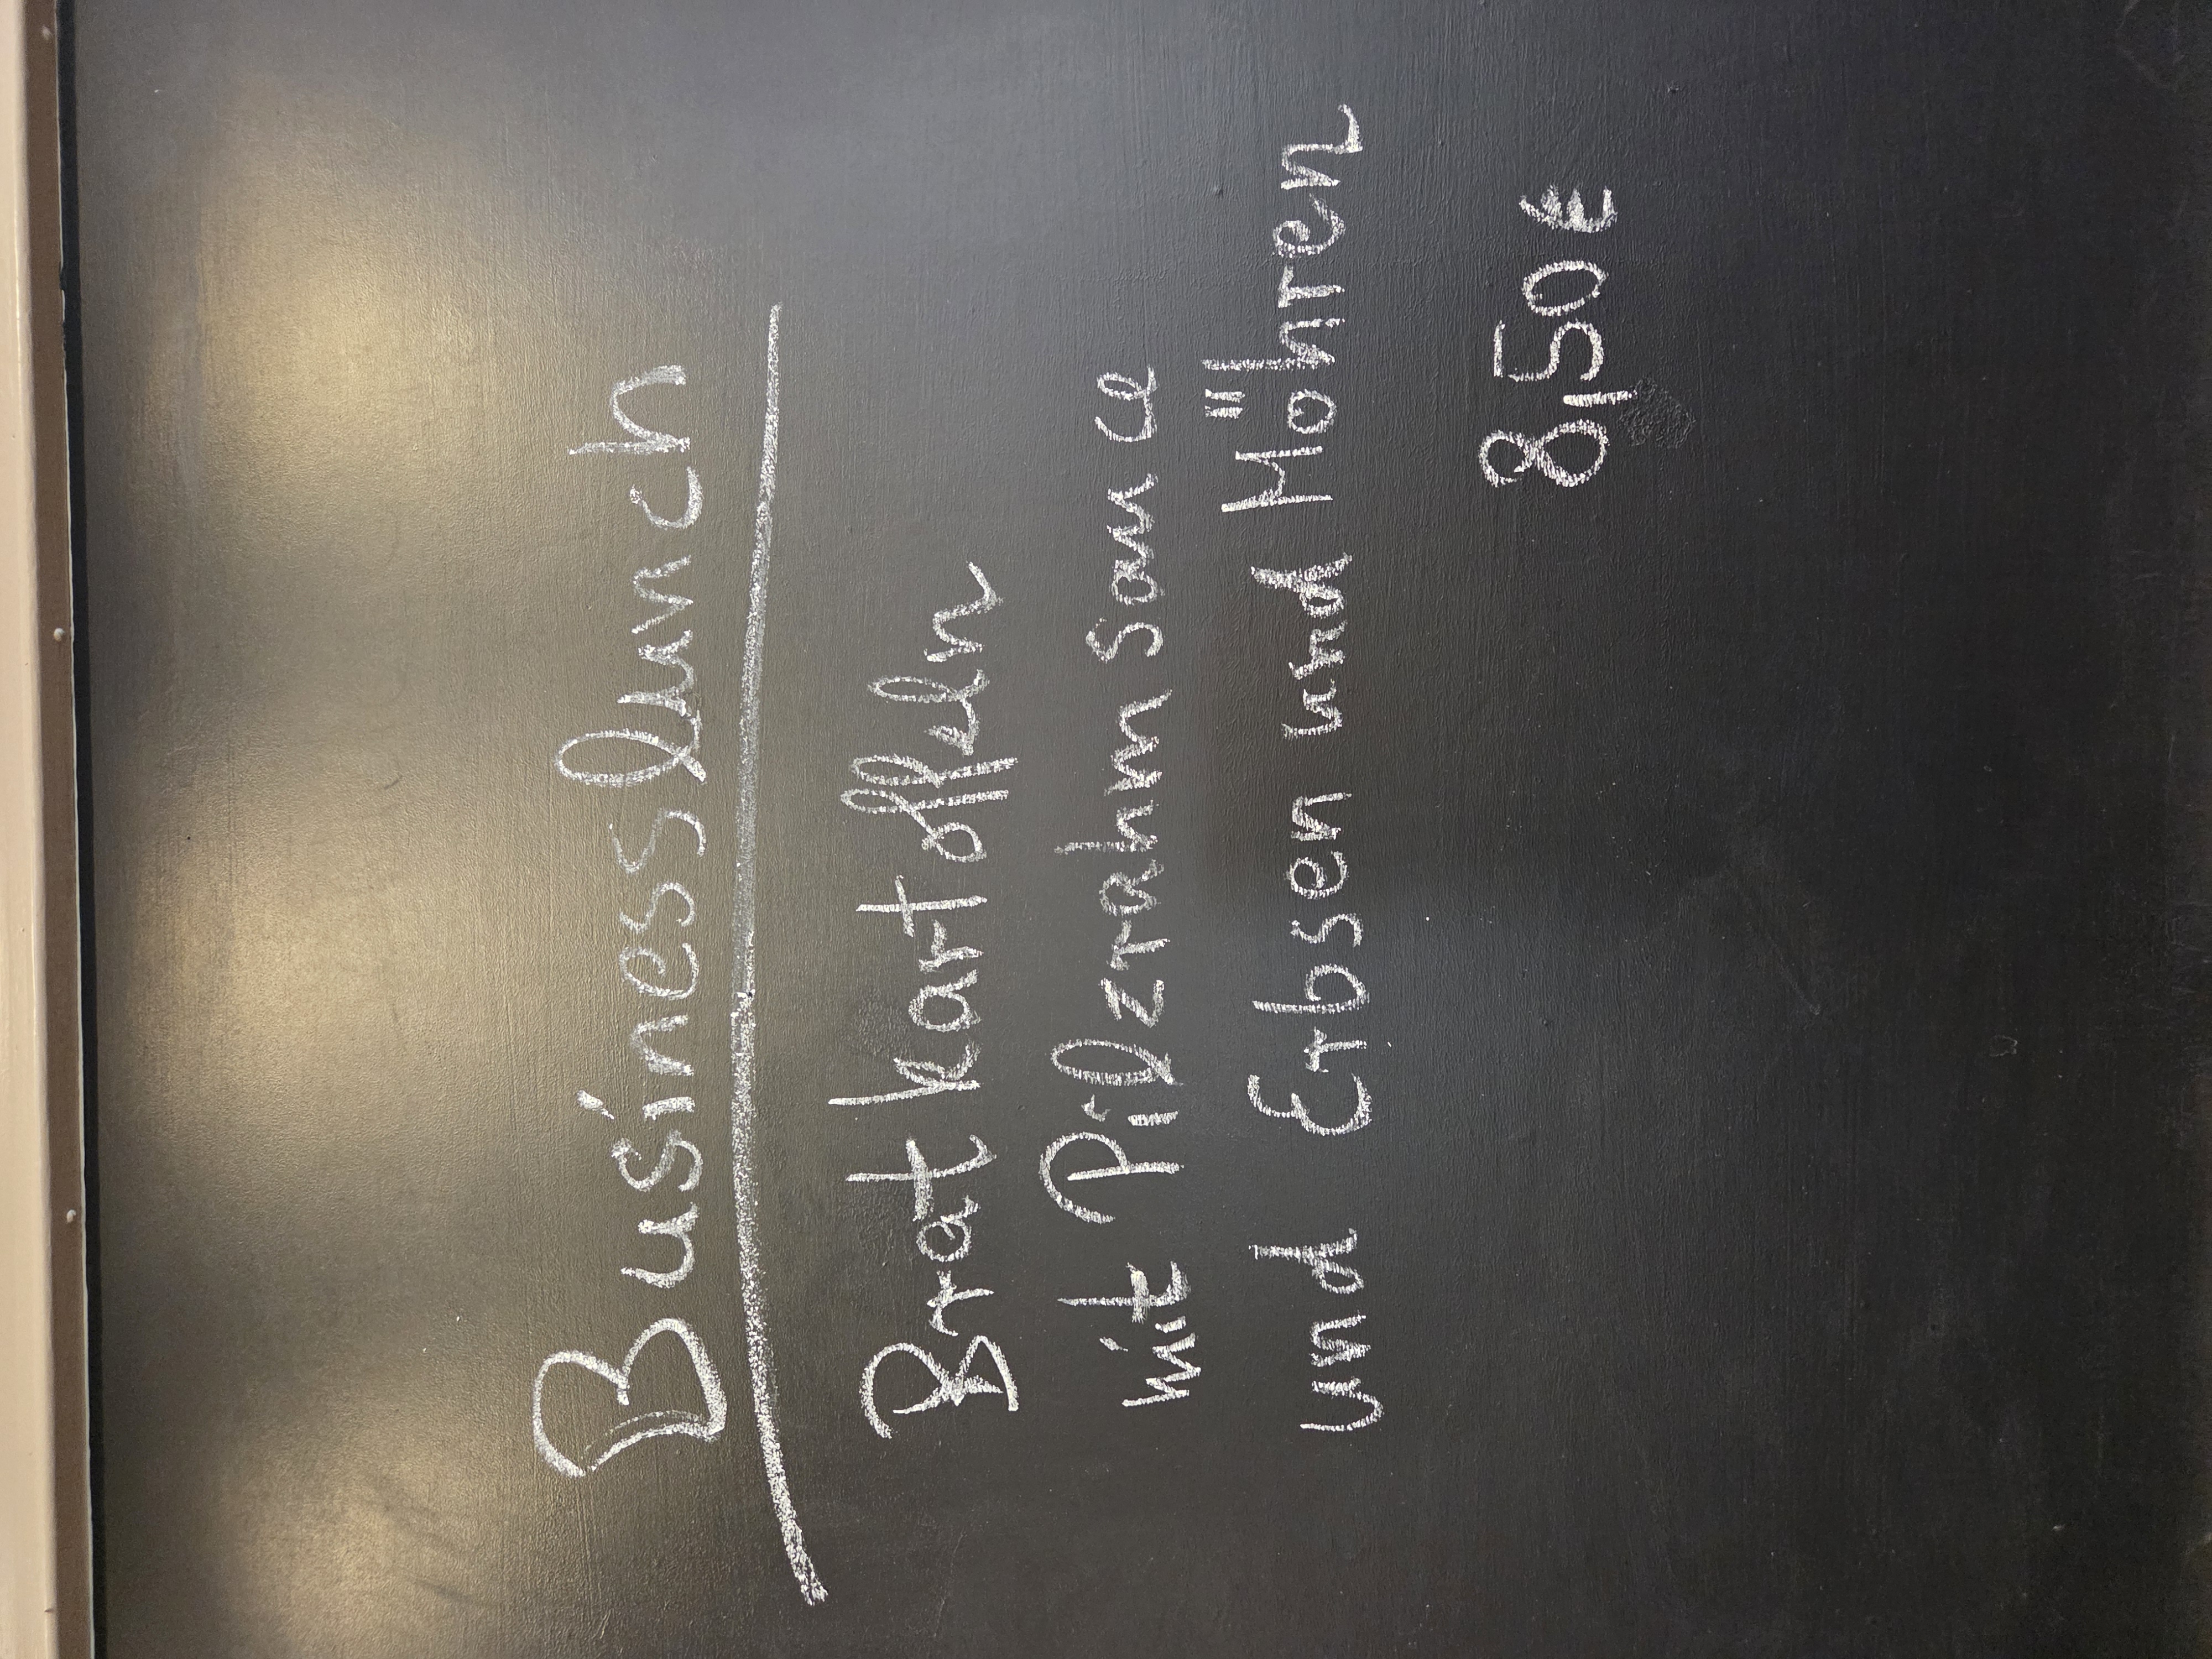 Businesslunch
Bratkartoffeln
mit Pilzrahm Sauce
und Erbsen und Möhren
8,50€